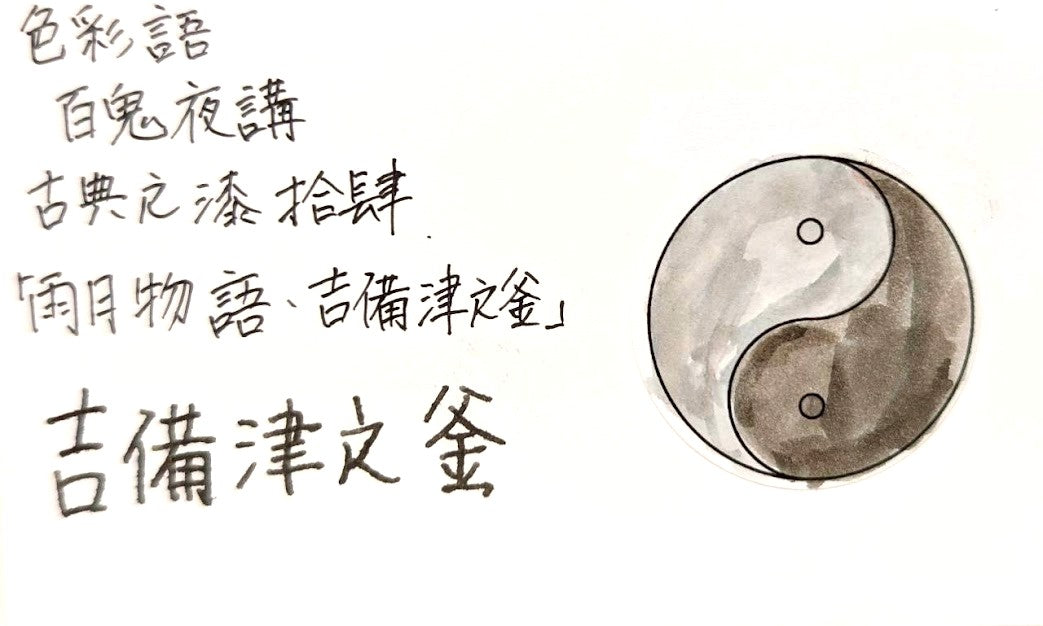 色彩語
百鬼夜講
古典之漆 拾肆
「雨月物語、吉備津之釜」
吉備津之釜